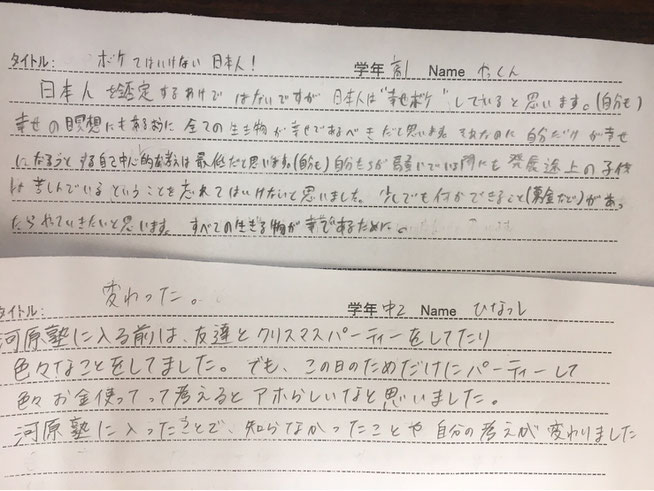 タイトル: ボケてはいけない日本人! 学年 高1 Name たっくん
日本人を否定するわけではないですが日本人は"幸せボケ"していると思います。(自分も)
幸せの瞑想にもあるように全ての生き物が幸せであるべきだと思います。それなのに自分だけが幸せ
になろうとする自己中心的な考えは最低だと思います。(自分も)自分たちが騒いでいる間にも発展途上の子供
は苦しんでいるということを忘れてはいけないと思いました。少しでも何かできること(募金など)があっ
たられていきたいと思います。すべての生きる物が幸せであるために。
タイトル: 変わった。 学年 中2 Name ひなっし
河原塾に入る前は、友達とクリスマスパーティーをしてたり
色々なことをしてました。でも、この日のためだけにパーティーして
色々お金使ってって考えるとアホらしいなと思いました。
河原塾に入ったことで、知らなかったことや自分の考えが変わりました